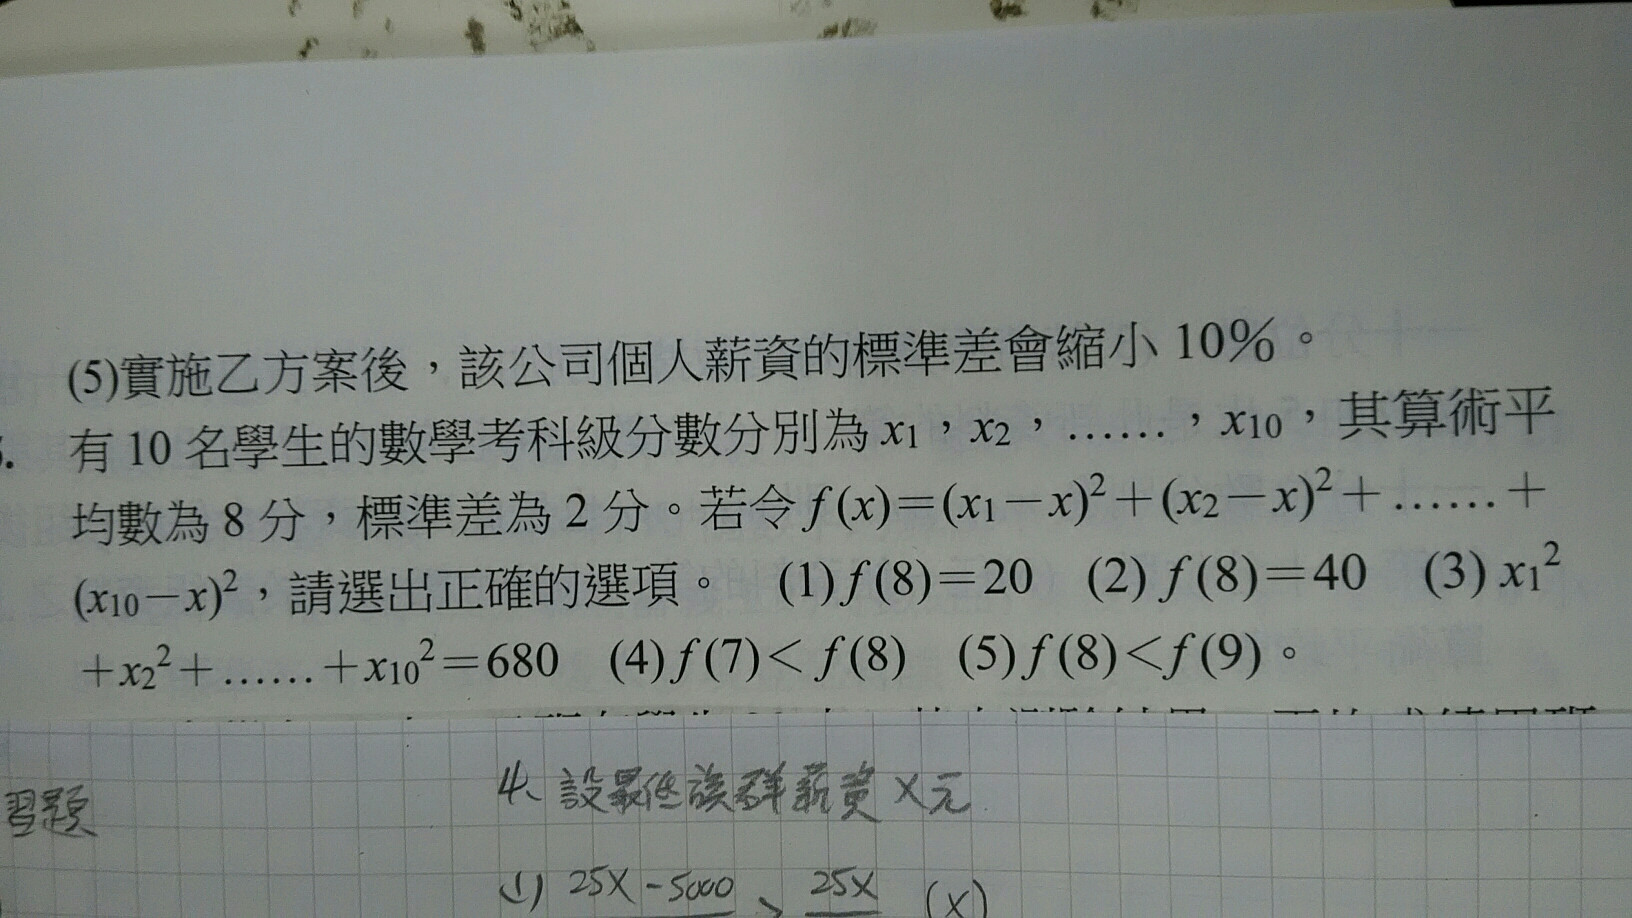 (5)實施乙方案後，該公司個人薪資的標準差會縮小 10%。
有 10 名學生的數學考科級分數分別為 x₁，x₂，……，x₁₀，其算術平
均數為 8 分，標準差為 2 分。若令 f(x)=(x₁−x)²+(x₂−x)²+……+
(x₁₀−x)²，請選出正確的選項。 (1) f(8)=20 (2) f(8)=40 (3) x₁²
+x₂²+……+x₁₀²=680 (4) f(7)< f(8) (5) f(8)<f(9)。
習題
4、設最低族群薪資 X 元
(1) 25X-5000 > 25X (X)